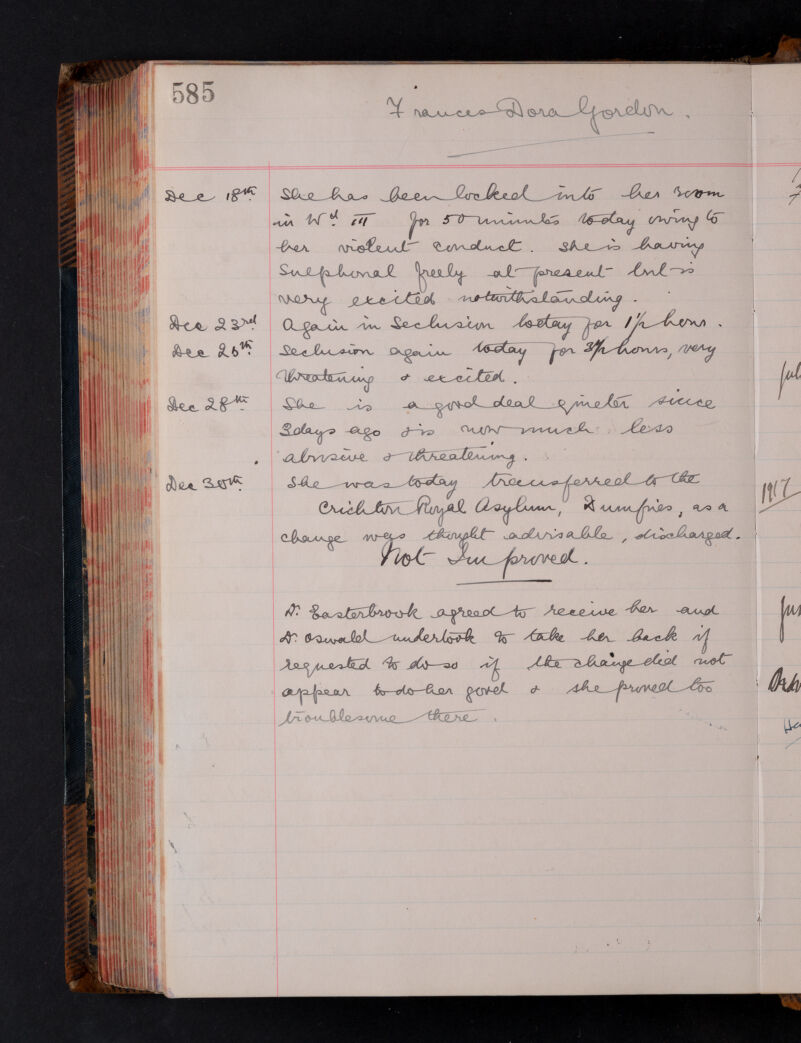 585
Frances Dora Gordon.
Dec 18th She has been locked into her room
in Wd III for 50 minutes today owing to
her violent conduct. She is having
Sulphonal freely at present but is
very excited notwithstanding.
Dec 23rd Again in Seclusion today for 1½ hour.
Dec 26th Seclusion again today for 3½ hours, very
threatening & excited.
Dec 28th She is a good deal quieter since
2 days ago & is now much less
abusive & threatening.
Dec 30th She was today transferred to the
Crichton Royal Asylum, Dumfries, as a
change was thought advisable, discharged.
Not Improved.
Dr. Easterbrook agreed to receive her and
Dr. Oswald undertook to take her back if
requested to do so if the change did not
appear to do her good & she proved too
troublesome there.
1917